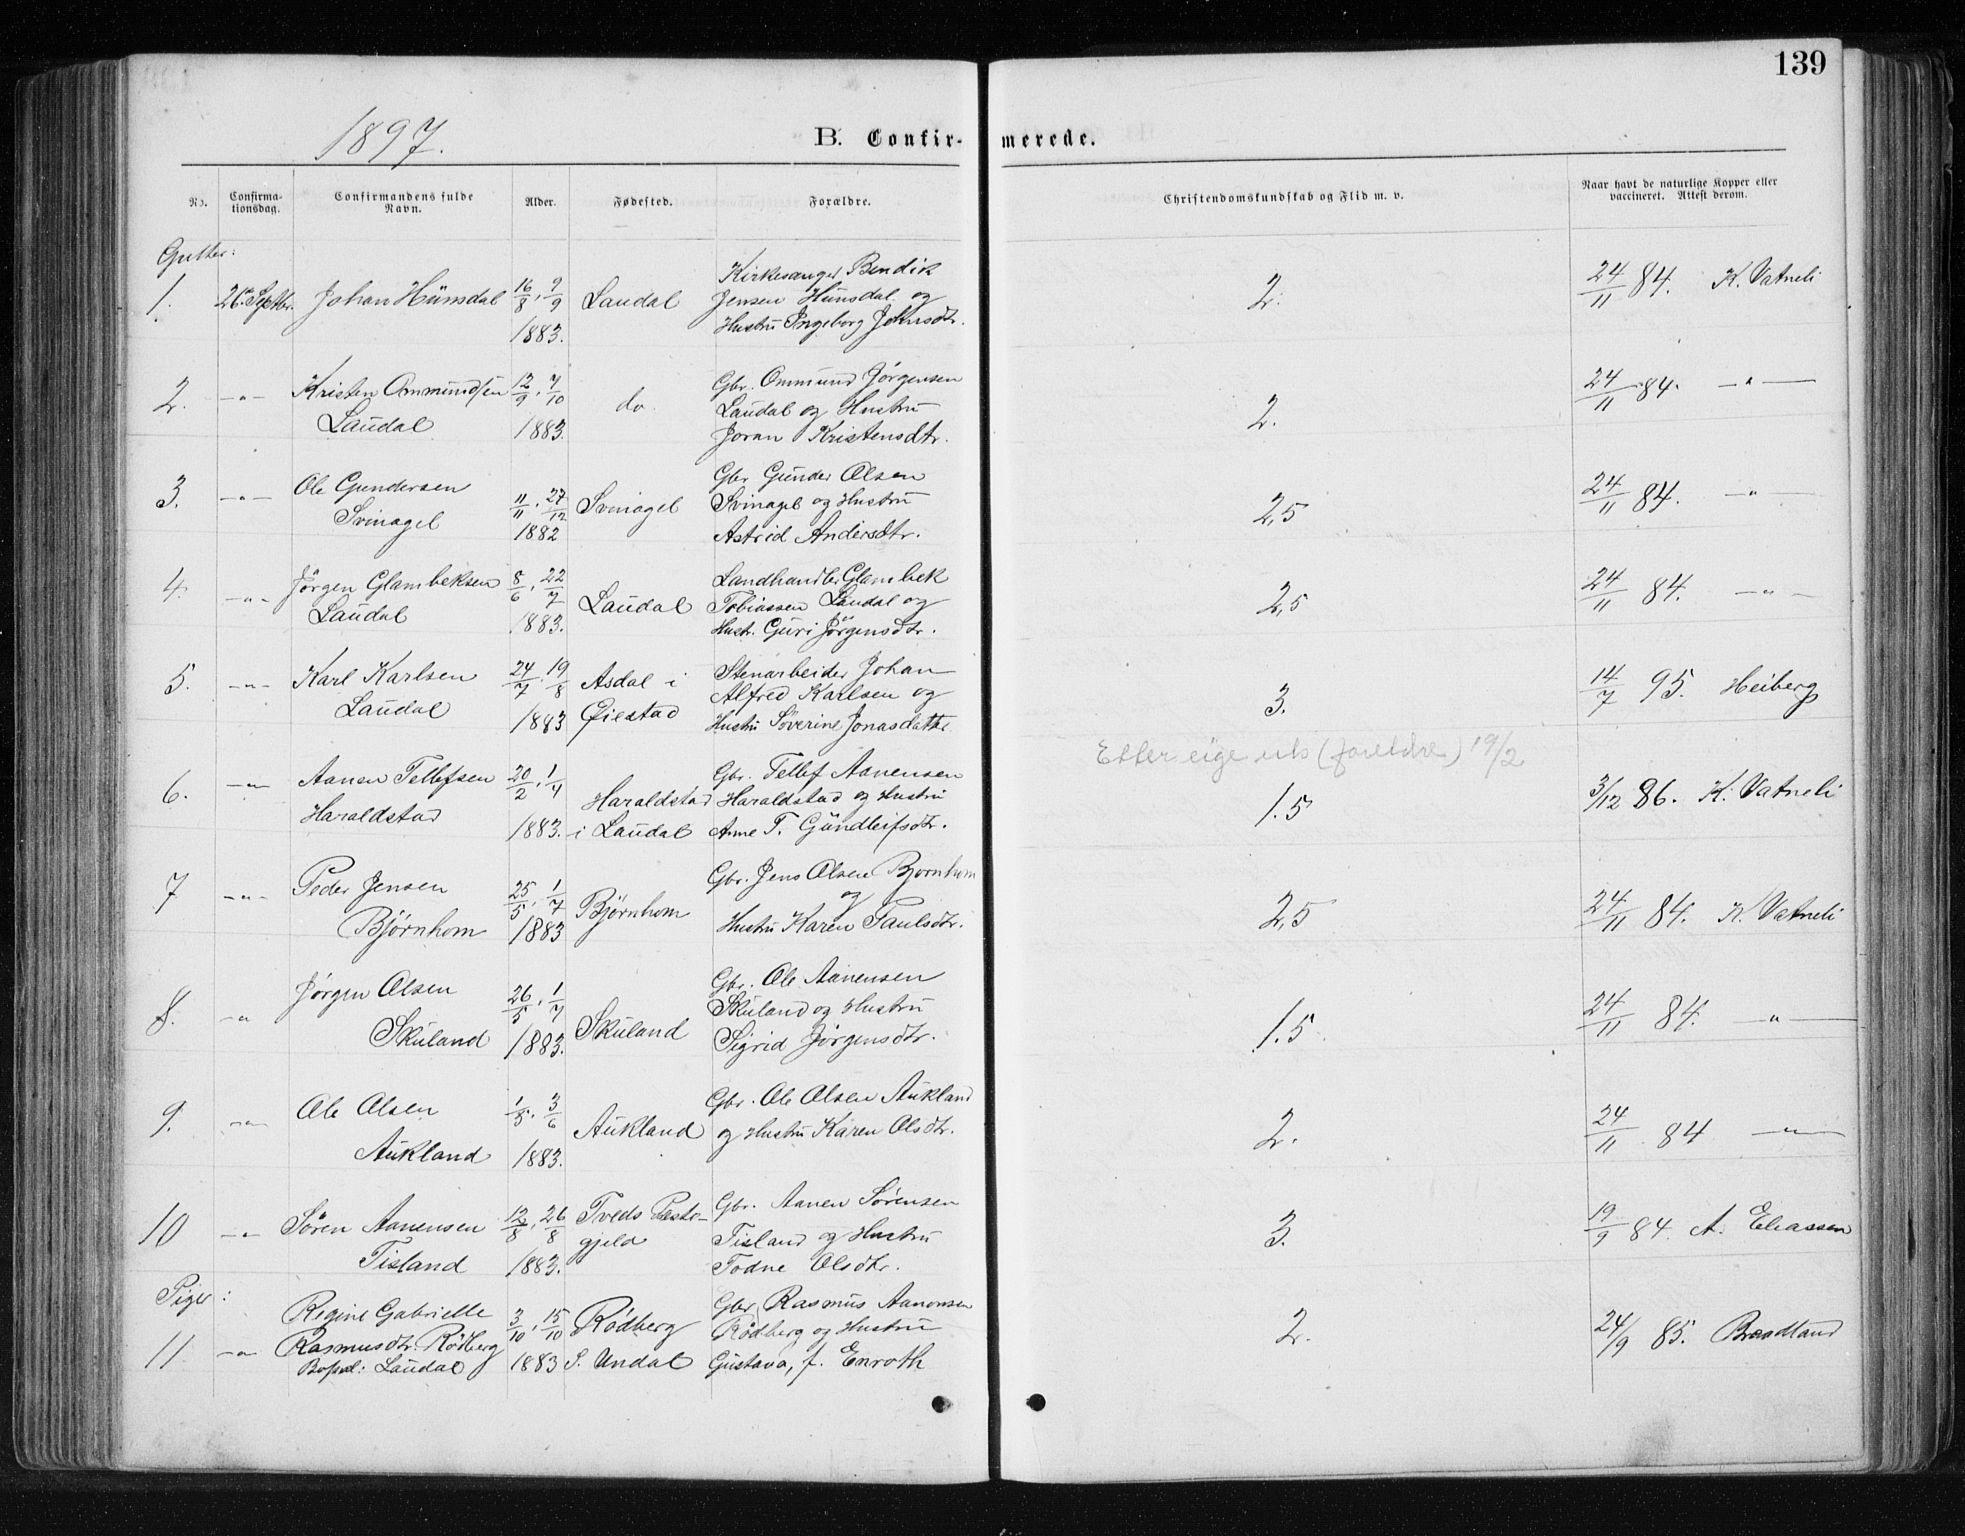 139
1897.
B. Confir- merede.
No.
Confirma-
tionsdag.
Confirmandens fulde
Navn.
Alder.
Fødested.
Forældre.
Christendomskundskab og Flid m. v.
Naar havt de naturlige Kopper eller
vaccineret. Attest derom.
Gutter:
1. 26. Septbr. Johan Hünsdal 16/8, 9/9 1883. Laudal
Kirkesanger Bendik
Jensen Hunsdal og
Hustru Ingeborg Johnsdtr.
2. 24/11 84. K. Vatneli
2. -"- Kristen Ommundsen
Laudal 12/9, 7/10 1883. do.
Gbr. Ommund Jörgensen
Laudal og Hustru
Joran Kristensdtr.
2. 24/11 84. -"-
3. -"- Ole Gundersen
Svinagel 11/11, 27/12 1882 Svinagel
Gbr. Gunder Olsen
Svinagel og Hustru
Astrid Andersdtr.
2,5 24/11 84. -"-
4. -"- Jörgen Glambeksen
Laudal 8/6, 22/7 1883. Laudal
Landhandler Glambek
Tobiassen Laudal og
Hustr. Guri Jörgensdtr.
2,5 24/11 84. -"-
5. -"- Karl Karlsen
Laudal 24/7, 19/8 1883 Asdal i
Øiestad
Stenarbeider Johan
Alfred Karlsen og
Hustru Söverine Jonasdatter
3. 14/7 95. Heiberg
Etter eige (foreldre) 19/2
6. -"- Aanen Tellefsen
Haraldstad 20/2, 1/4 1883. Haraldstad
i Laudal
Gbr. Tellef Aanensen
Haraldstad og Hustru
Anne T. Gundleifsdtr.
1.5 3/12 86. K. Vatneli
7 -"- Peder Jensen
Björnhom 25/5, 1/7 1883 Björnhom
Gbr. Jens Olsen Bjornhom
og
Hustru Karen Paulsdtr.
2,5 24/11 84. K. Vatneli
8. -"- Jörgen Olsen
Skuland 26/5, 1/7 1883. Skuland
Gbr. Ole Aanensen
Skuland og Hustru
Sigrid Jörgensdtr.
1.5 24/11 84. -"-
9. -"- Ole Olsen
Aukland 1/5, 3/6 1883. Aukland
Gbr. Ole Olsen Aukland
og Hustru Karen Olsdtr.
2. 24/11 84 -"-
10 -"- Sören Aanensen
Tisland 12/8, 26/8 1883. Tveds Præste-
gjeld
Gbr. Aanen Sörensen
Tisland og Hustru
Todne Olsdtr.
3. 19/9 84. A. Eliassen
Piger:
11. -"- Regine Gabrielle
Rasmusdtr. Rödberg
Bopæl: Laudal 3/10, 15/10 1883 Rödberg
S. Undal
Gbr. Rasmus Aanonsen
Rödberg og Hustru
Gustava, f. Enroth
2. 24/9 85. Brædland